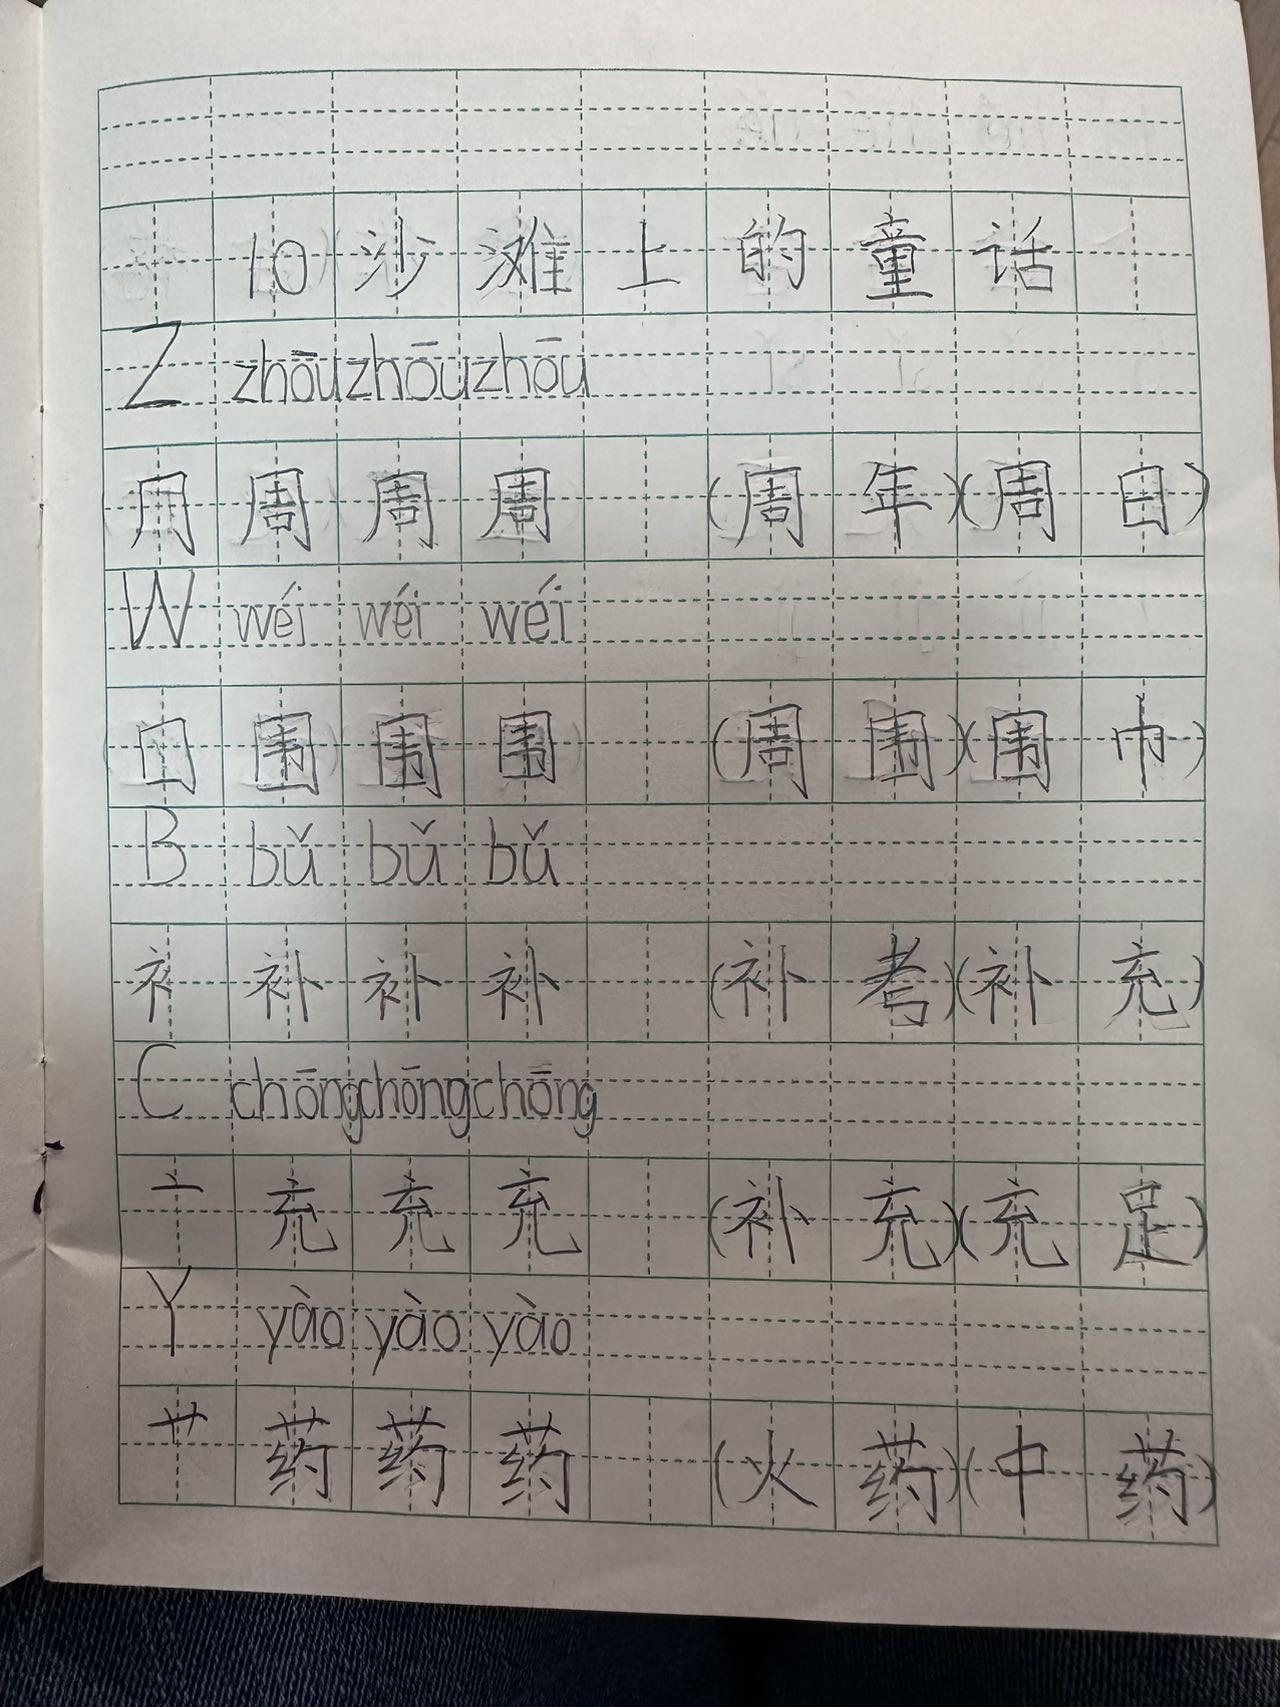 10 沙滩上的童话
Z zhōu zhōu zhōu
⺆ 周 周 周 (周年)(周日)
W wéi wéi wéi
囗 围 围 围 (周围)(围巾)
B bǔ bǔ bǔ
衤 补 补 补 (补考)(补充)
C chōng chōng chōng
亠 充 充 充 (补充)(充足)
Y yào yào yào
艹 药 药 药 (火药)(中药)